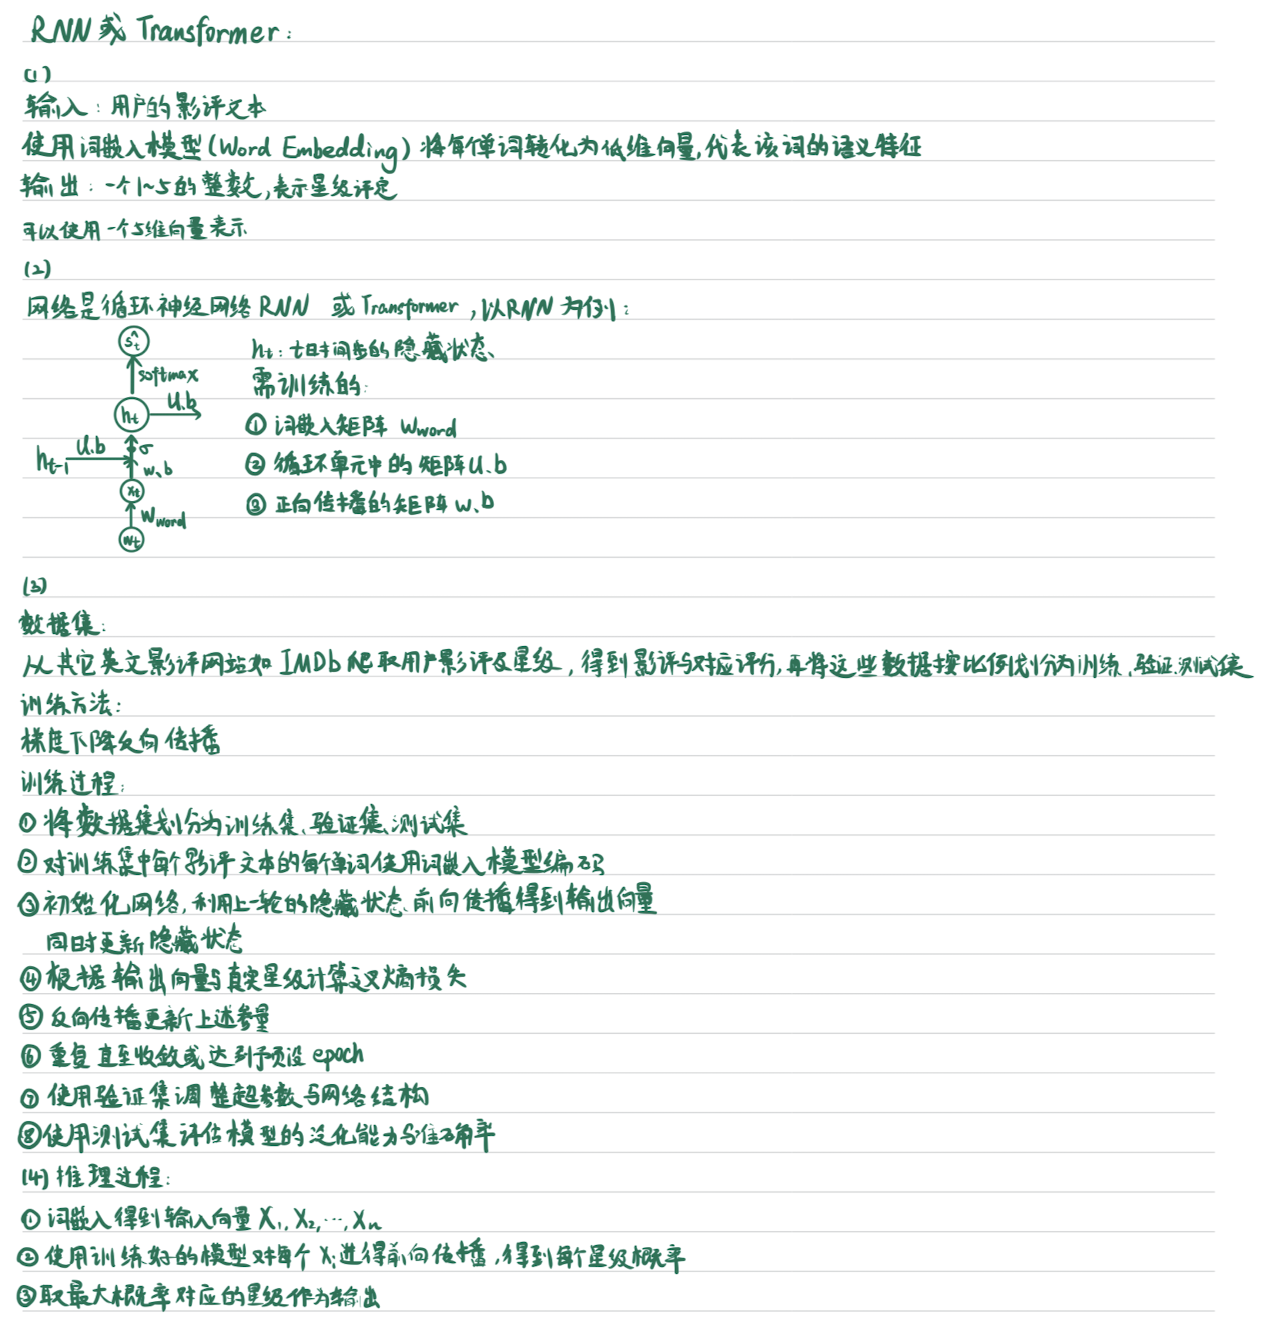 RNN或 Transformer:
(1)
输入:用户的影评文本
使用词嵌入模型(Word Embedding)将每个单词转化为低维向量,代表该词的语义特征
输出:一个1~5的整数,表示星级评定
可以使用一个5维向量表示
(2)
网络是循环神经网络RNN 或Transformer,以RNN为例:
ŝt
softmax
ht U.b
ht-1 U.b σ
w、b
xt
Wword
wt
ht:t时间步的隐藏状态、
需训练的:
① 词嵌入矩阵 Wword
② 循环单元中的矩阵U、b
③ 正向传播的矩阵 w、b
(3)
数据集:
从其它英文影评网站如 IMDb爬取用户影评及星级,得到影评与对应评分,再将这些数据按比例划分为训练、验证、测试集
训练方法:
梯度下降反向传播
训练过程:
① 将数据集划分为训练集、验证集、测试集
② 对训练集中每个影评文本的每个单词使用词嵌入模型编码
③ 初始化网络,利用上一轮的隐藏状态,前向传播得到输出向量
同时更新隐藏状态
④ 根据输出向量与真实星级计算交叉熵损失
⑤ 反向传播更新上述参量
⑥ 重复直至收敛或达到预设 epoch
⑦ 使用验证集调整超参数与网络结构
⑧ 使用测试集评估模型的泛化能力与准确率
(4) 推理过程:
① 词嵌入得到输入向量 X1, X2, ..., Xn
② 使用训练好的模型对每个 Xi进得前向传播,得到每个星级概率
③ 取最大概率对应的星级作为输出